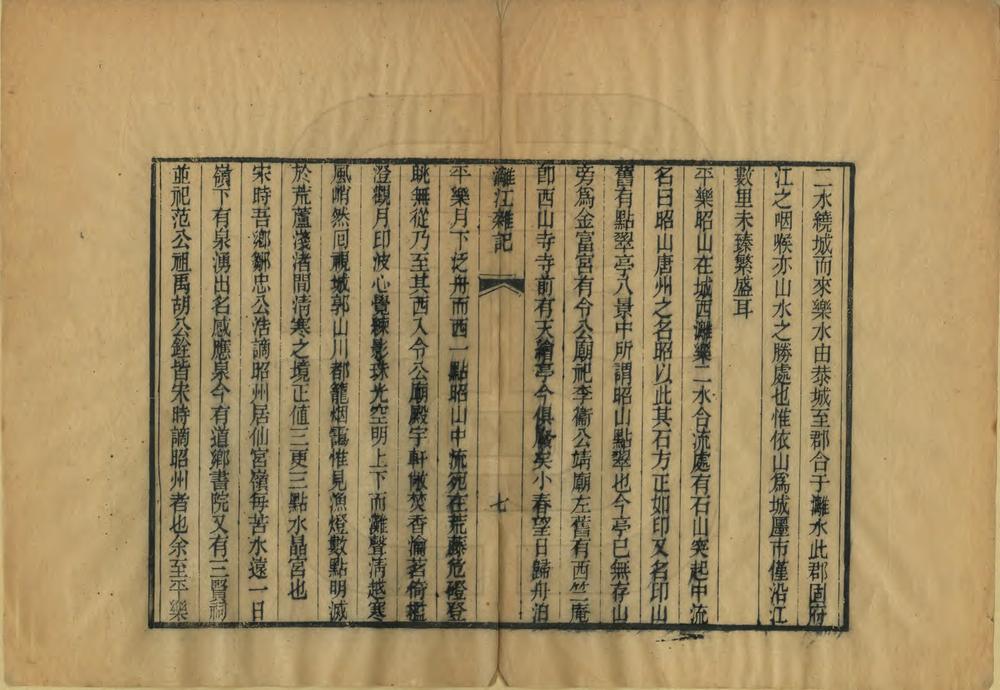 二水繞城而來樂水由恭城至郡合于灕水此郡固府
江之咽喉亦山水之勝處也惟依山爲城廛市僅沿江
數里未臻繁盛耳
平樂昭山在城西灕樂二水合流處有石山突起中流
名曰昭山唐州之名昭以此其石方正如印又名印山
舊有點翠亭八景中所謂昭山點翠也今亭已無存山
旁爲金富宮有令公廟祀李衞公靖廟左舊有西竺庵
卽西山寺寺前有天繪亭今俱廢矣小春望日歸舟泊
灕江雜記
七
平樂月下泛舟而西一點昭山中流宛在荒藤危磴登
眺無從乃至其西入令公廟殿宇軒敞焚香瀹茗倚檻
澄觀月印波心覺練影珠光空明上下而灘聲淸越寒
風峭然囘視城郭山川都籠烟靄惟見漁燈數點明滅
於荒蘆淺渚間淸寒之境正値三更三點水晶宮也
宋時吾鄉鄒忠公浩謫昭州居仙宮嶺每苦水遠一日
嶺下有泉湧出名感應泉今有道鄉書院又有三賢祠
並祀范公祖禹胡公銓皆宋時謫昭州者也余至平樂